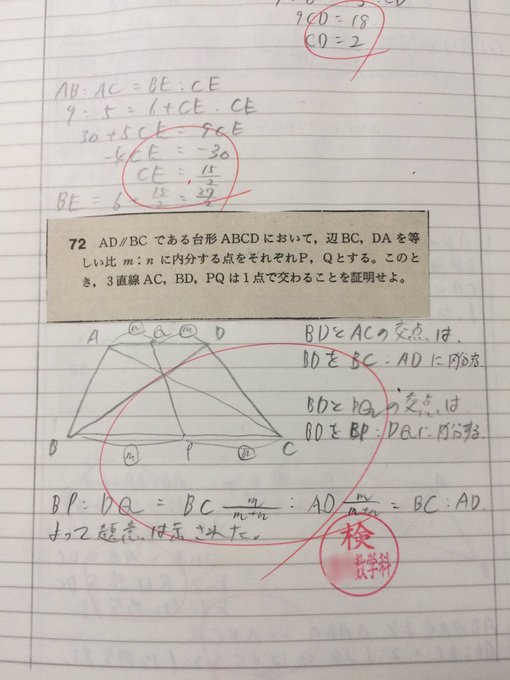 9CD = 18
CD = 2
AB : AC = BE : CE
9 : 5 = 6+CE : CE
30 + 5CE = 9CE
-4CE = -30
CE = 15/2
BE = 6 + 15/2 = 27/2
72 AD∥BC である台形 ABCD において，辺 BC，DA を等
しい比 m：n に内分する点をそれぞれ P，Q とする。このと
き，3直線 AC，BD，PQ は1点で交わることを証明せよ。
A n Q m D
B m P n C
BDとACの交点は
BDを BC : AD に内分する
BDとPQの交点は
BDを BP : DQに内分する
BP : DQ = BC m/m+n : AD m/m+n = BC : AD.
よって題意は示された。
検
数学科